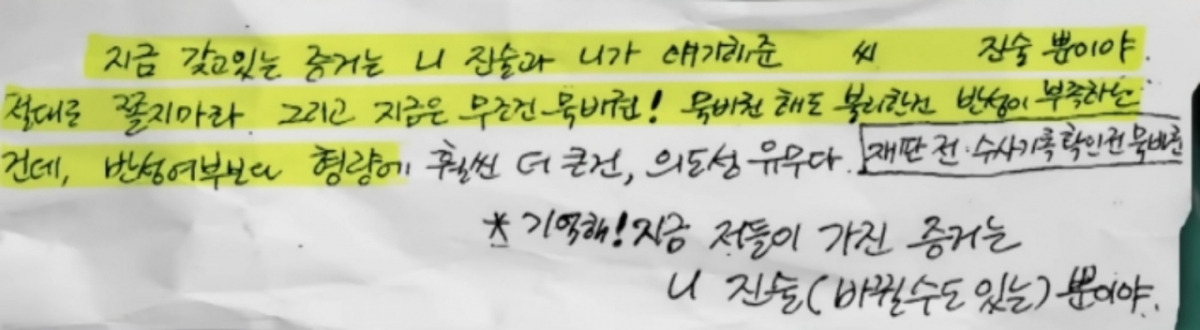 지금 갖고있는 증거는 니 진술과 니가 얘기해준 씨 진술 뿐이야.
절대로 쫄지마라 그리고 지금은 무조건 묵비권! 묵비권 해도 불리한건 반성이 부족하는
건데, 반성여부보다 형량에 훨씬 더 큰건, 의도성 유무다. 재판 전·수사기록 확인전 묵비권
* 기억해! 지금 저들이 가진 증거는
니 진술(바뀔수도 있는) 뿐이야.